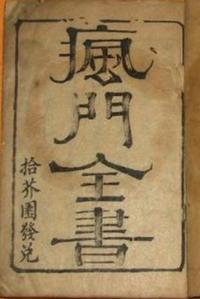 瘋門全書
拾芥園發兌